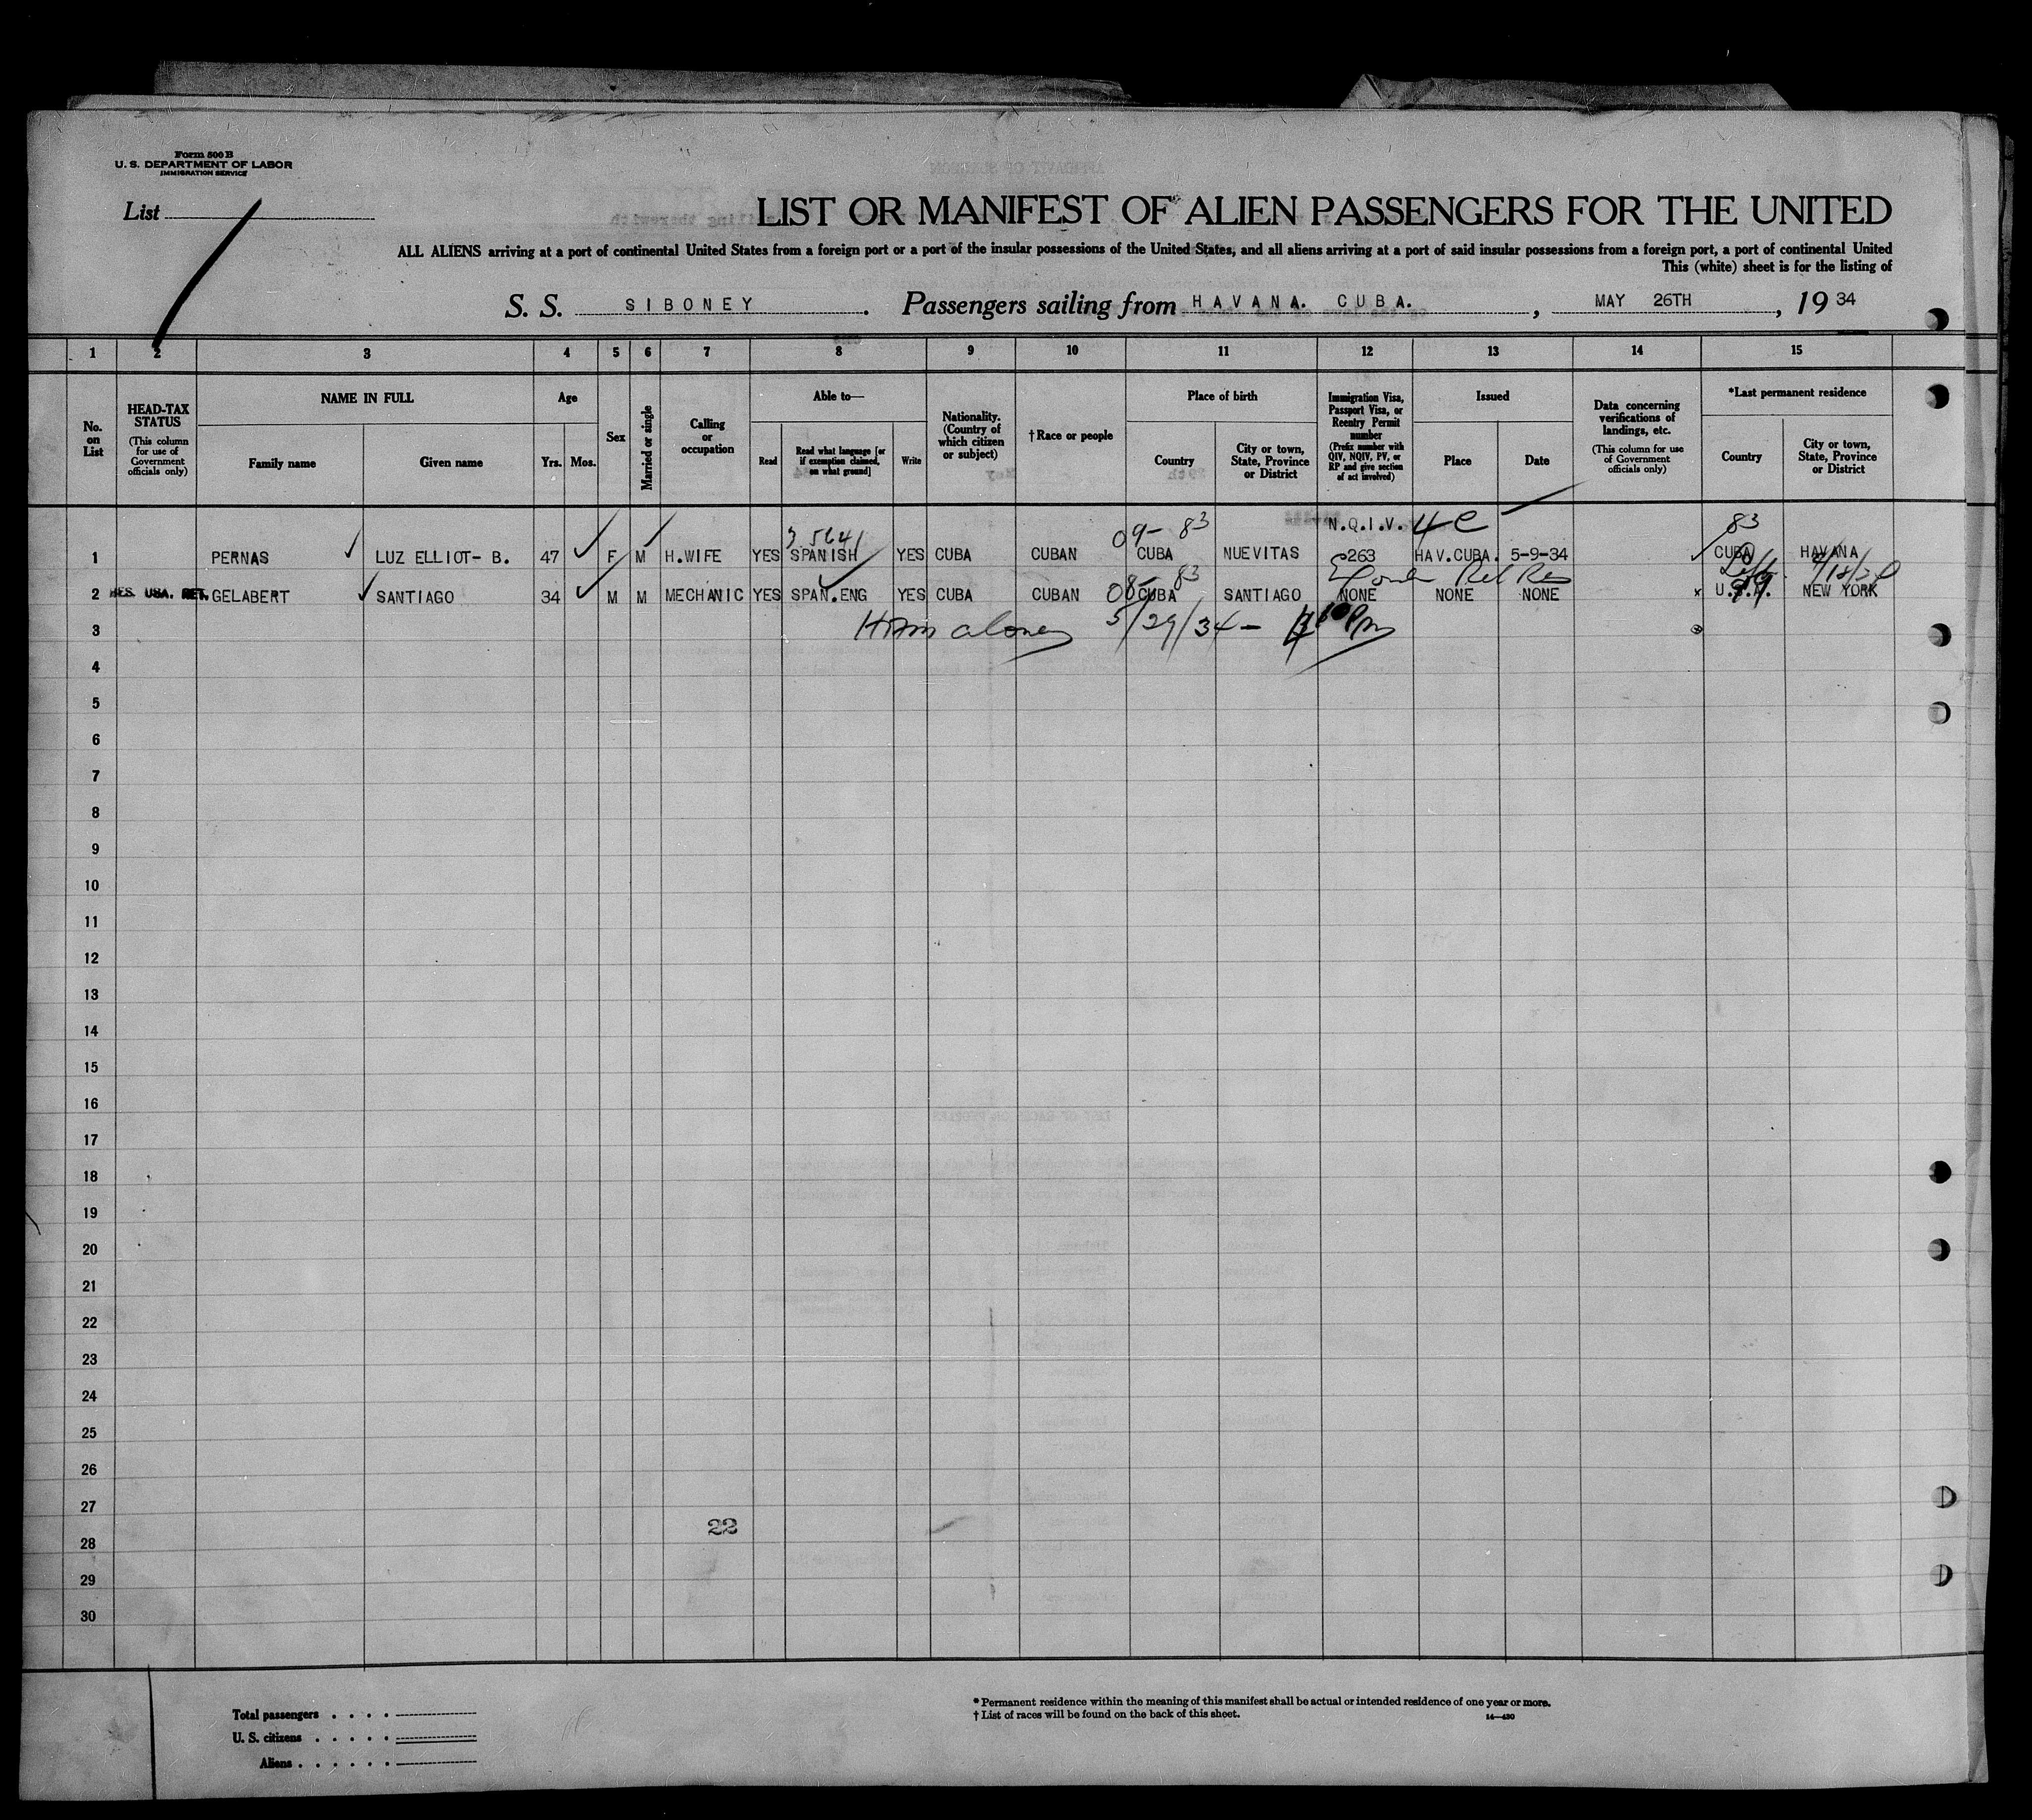 Form 500 B
U. S. DEPARTMENT OF LABOR
IMMIGRATION SERVICE
List
LIST OR MANIFEST OF ALIEN PASSENGERS FOR THE UNITED
ALL ALIENS arriving at a port of continental United States from a foreign port or a port of the insular possessions of the United States, and all aliens arriving at a port of said insular possessions from a foreign port, a port of continental United
This (white) sheet is for the listing of
S. S. SIBONEY. Passengers sailing from HAVANA. CUBA. , MAY 26TH , 19 34
1 2 3 4 5 6 7 8 9 10 11 12 13 14 15
No. on List
HEAD-TAX STATUS
(This column for use of Government officials only)
NAME IN FULL
Family name
Given name
Age
Yrs. Mos.
Sex
Married or single
Calling or occupation
Able to—
Read
Read what language [or if exemption claimed, on what ground]
Write
Nationality. (Country of which citizen or subject)
† Race or people
Place of birth
Country
City or town, State, Province or District
Immigration Visa, Passport Visa, or Reentry Permit number
(Prefix number with QIV, NQIV, PV, or RP and give section of act involved)
Issued
Place
Date
Data concerning verifications of landings, etc.
(This column for use of Government officials only)
*Last permanent residence
Country
City or town, State, Province or District
3 5641 09- 83 N.Q.I.V. 4 e 83
1 PERNAS LUZ ELLIOT- B. 47 F M H.WIFE YES SPANISH YES CUBA CUBAN CUBA NUEVITAS 263 HAV.CUBA. 5-9-34 CUBA HAVANA
08- 83
2 RES. USA. RET. GELABERT SANTIAGO 34 M M MECHANIC YES SPAN.ENG YES CUBA CUBAN CUBA SANTIAGO NONE NONE NONE NEW YORK
3 5/29/34-
4
5
6
7
8
9
10
11
12
13
14
15
16
17
18
19
20
21
22
23
24
25
26
27
22
28
29
30
Total passengers . . . .
U. S. citizens . . . . .
Aliens . . . . . .
* Permanent residence within the meaning of this manifest shall be actual or intended residence of one year or more.
† List of races will be found on the back of this sheet.
14—430